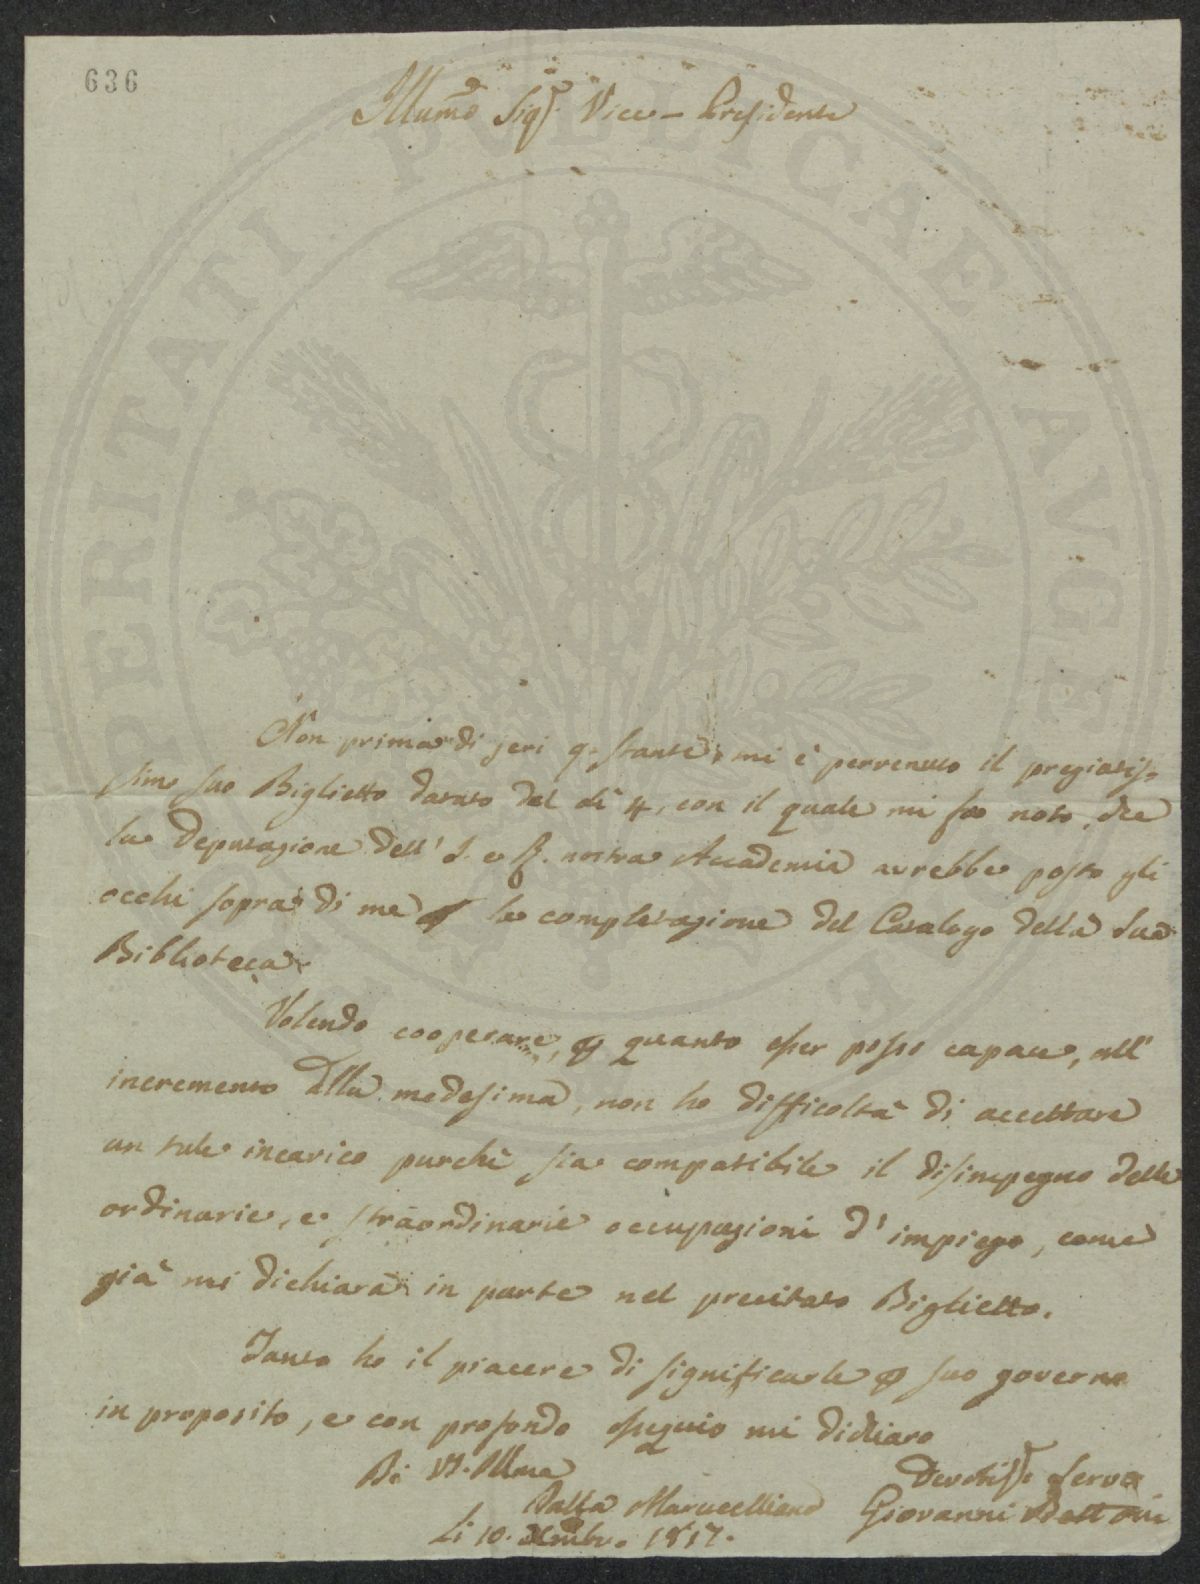 636
Illumo Sigr. Vice-Presidente
Non prima di jeri q. stante, mi è pervenuto il pregiatis-
simo suo Biglietto datato del dì 4, con il quale mi fa noto, che
la Deputazione dell' I. e R. nostra Accademia avrebbe posto gli
occhi sopra di me p la completazione del Catalogo della sua
Biblioteca.
Volendo cooperare, p quanto esser posso capace, all'
incremento della medesima, non ho difficoltà di accettare
un tale incarico purchè sia compatibile il disimpegno delle
ordinarie, e straordinarie occupazioni d' impiego, come
già mi dichiara in parte nel precitato Biglietto.
Tanto ho il piacere di significarle p suo governo
in proposito, e con profondo ossequio mi dichiaro
Di VS. Illma
Devotiss. Servo
Dalla Marucelliana Giovanni Bettoni
Li 10. Xbre. 1817.
PROSPERITATI PUBLICAE AVGENDAE